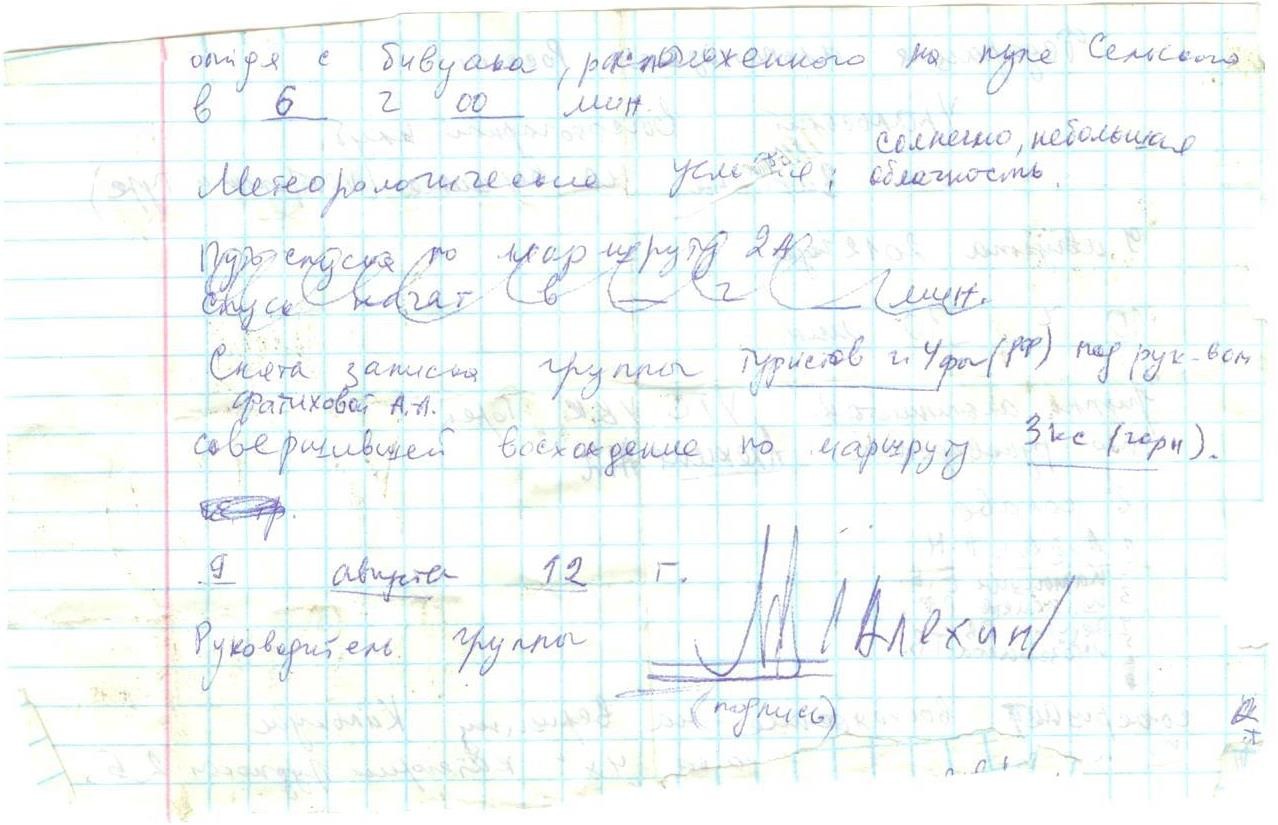 отйдя с бивуака, расположенного на пупе Сельского
в 6 г 00 мин.
солнечно, небольшая
Метеорологические условия: облачность.
Путь спуска по маршруту 2А
спуск начат в __ г __ мин.
Снята записка группы туристов г. Уфы (РФ) под рук-вом
Фатиховой А.А.
совершившей восхождение по маршруту 3кс (горн).
9 августа 12 г.
Руководитель группы /Алехин/
(подпись)